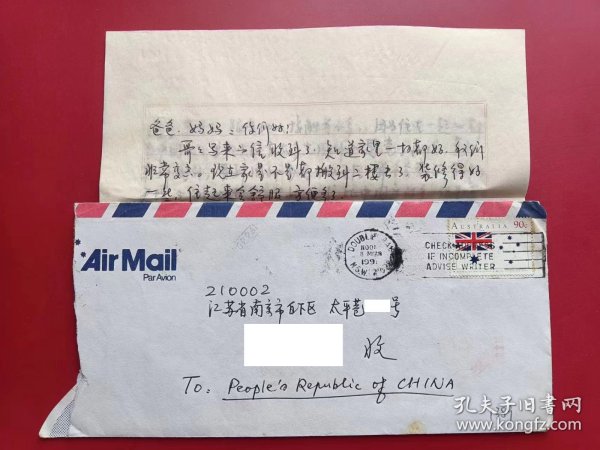 爸爸、妈妈：你们好！
哥哥写来的信收到了，知道家里一切都好，我们
非常高兴。现在家是不是都搬到二楼去了，装修得好
一些，住起来会舒服、方便多了
Air Mail
Par Avion
AUSTRALIA 90c
DOUBLE BAY
1991
NSW
CHECK ADDRESS
IF INCOMPLETE
ADVISE WRITER
210002
江苏省南京市白下区 太平巷 号
收
To: People's Republic of CHINA
孔夫子旧书网
www.kongfz.com